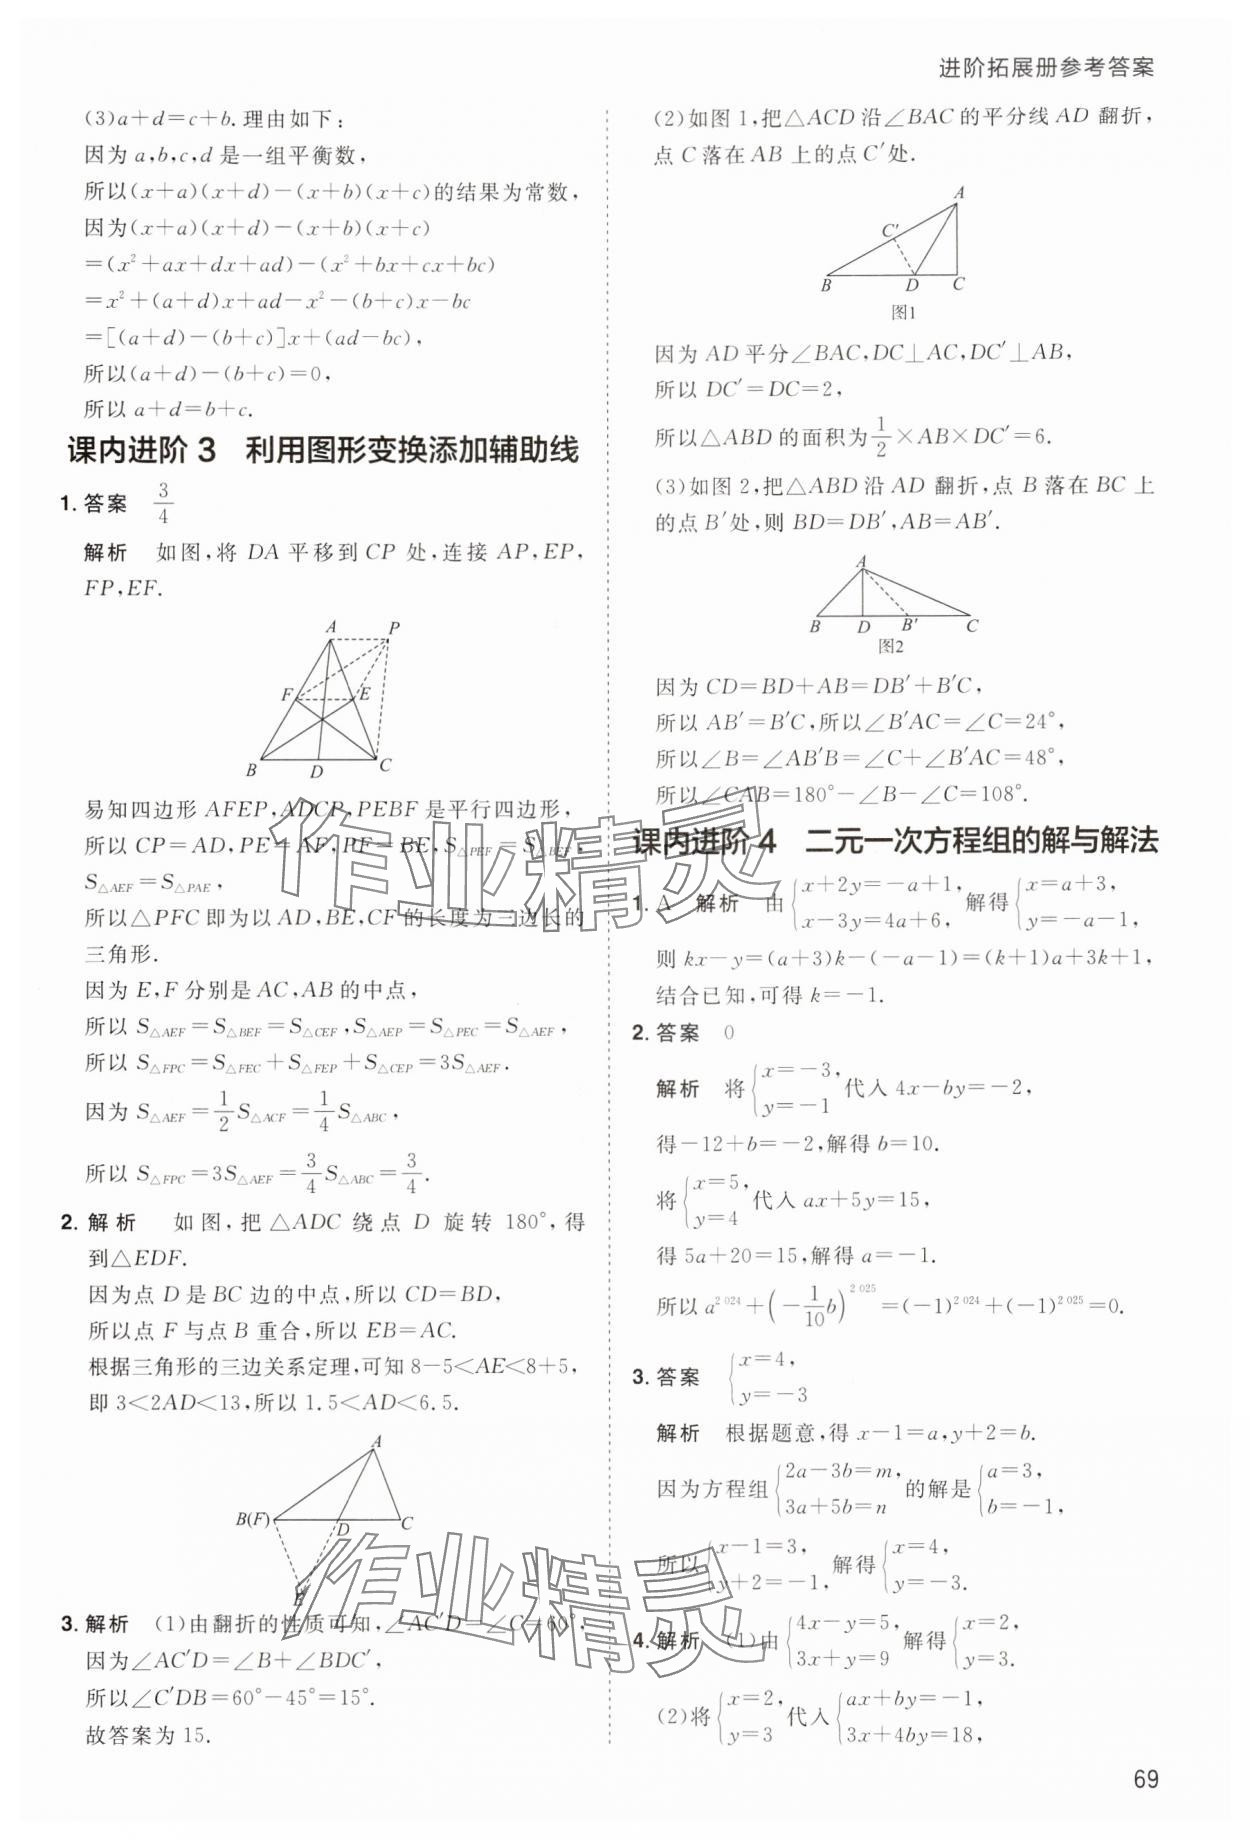 进阶拓展册参考答案
(3)a+d=c+b.理由如下:
因为a,b,c,d是一组平衡数,
所以(x+a)(x+d)-(x+b)(x+c)的结果为常数,
因为(x+a)(x+d)-(x+b)(x+c)
=(x²+ax+dx+ad)-(x²+bx+cx+bc)
=x²+(a+d)x+ad-x²-(b+c)x-bc
=[(a+d)-(b+c)]x+(ad-bc),
所以(a+d)-(b+c)=0,
所以a+d=b+c.
课内进阶3 利用图形变换添加辅助线
1. 答案 3/4
解析 如图,将DA平移到CP处,连接AP,EP,
FP,EF.
A P
F E
B D C
易知四边形AFEP,ADCP,PEBF是平行四边形,
所以CP=AD,PE=AF,PF=BE,S△PEF=S△BEF,
S△AEF=S△PAE,
所以△PFC即为以AD,BE,CF的长度为三边长的
三角形.
因为E,F分别是AC,AB的中点,
所以S△AEF=S△BEF=S△CEF,S△AEP=S△PEC=S△AEF,
所以S△FPC=S△FEC+S△FEP+S△CEP=3S△AEF.
因为S△AEF=1/2 S△ACF=1/4 S△ABC,
所以S△FPC=3S△AEF=3/4 S△ABC=3/4.
2. 解析 如图,把△ADC绕点D旋转180°,得
到△EDF.
因为点D是BC边的中点,所以CD=BD,
所以点F与点B重合,所以EB=AC.
根据三角形的三边关系定理,可知8-5<AE<8+5,
即3<2AD<13,所以1.5<AD<6.5.
A
B(F) D C
E
3. 解析 (1)由翻折的性质可知,∠AC′D=∠C=60°,
因为∠AC′D=∠B+∠BDC′,
所以∠C′DB=60°-45°=15°.
故答案为15.
(2)如图1,把△ACD沿∠BAC的平分线AD翻折,
点C落在AB上的点C′处.
A
C′
B D C
图1
因为AD平分∠BAC,DC⊥AC,DC′⊥AB,
所以DC′=DC=2,
所以△ABD的面积为1/2×AB×DC′=6.
(3)如图2,把△ABD沿AD翻折,点B落在BC上
的点B′处,则BD=DB′,AB=AB′.
A
B D B′ C
图2
因为CD=BD+AB=DB′+B′C,
所以AB′=B′C,所以∠B′AC=∠C=24°,
所以∠B=∠AB′B=∠C+∠B′AC=48°,
所以∠CAB=180°-∠B-∠C=108°.
课内进阶4 二元一次方程组的解与解法
1. A 解析 由{x+2y=-a+1, x-3y=4a+6, 解得{x=a+3, y=-a-1,
则kx-y=(a+3)k-(-a-1)=(k+1)a+3k+1,
结合已知,可得k=-1.
2. 答案 0
解析 将{x=-3, y=-1 代入4x-by=-2,
得-12+b=-2,解得b=10.
将{x=5, y=4 代入ax+5y=15,
得5a+20=15,解得a=-1.
所以a^2 024+(-1/10 b)^2 025=(-1)^2 024+(-1)^2 025=0.
3. 答案 {x=4, y=-3
解析 根据题意,得x-1=a,y+2=b.
因为方程组{2a-3b=m, 3a+5b=n 的解是{a=3, b=-1,
所以{x-1=3, y+2=-1, 解得{x=4, y=-3.
4. 解析 (1)由{4x-y=5, 3x+y=9 解得{x=2, y=3.
(2)将{x=2, y=3 代入{ax+by=-1, 3x+4by=18,
69
作业精灵
作业精灵